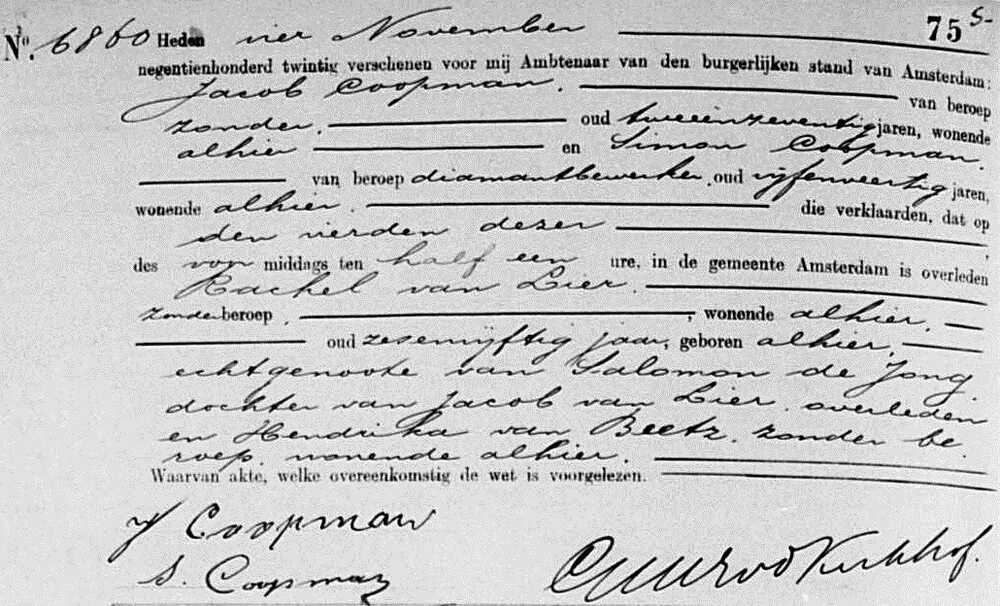 No. 6860 Heden vier November 75 S-
negentienhonderd twintig verschenen voor mij Ambtenaar van den burgerlijken stand van Amsterdam:
Jacob Coopman. van beroep
zonder, oud tweeënzeventig jaren, wonende
alhier en Simon Coopman.
van beroep diamantbewerker, oud vijfenveertig jaren,
wonende alhier. die verklaarden, dat op
den vierden dezer
des voor middags ten half een ure, in de gemeente Amsterdam is overleden
Rachel van Lier.
zonder beroep, wonende alhier.
oud zesenvijftig jaar, geboren alhier,
echtgenoote van Salomon de Jong
dochter van Jacob van Lier. overleden
en Hendrika van Beetz. zonder be
roep. wonende alhier.
Waarvan akte, welke overeenkomstig de wet is voorgelezen.
J Coopman
S. Coopman
Kerkhof.